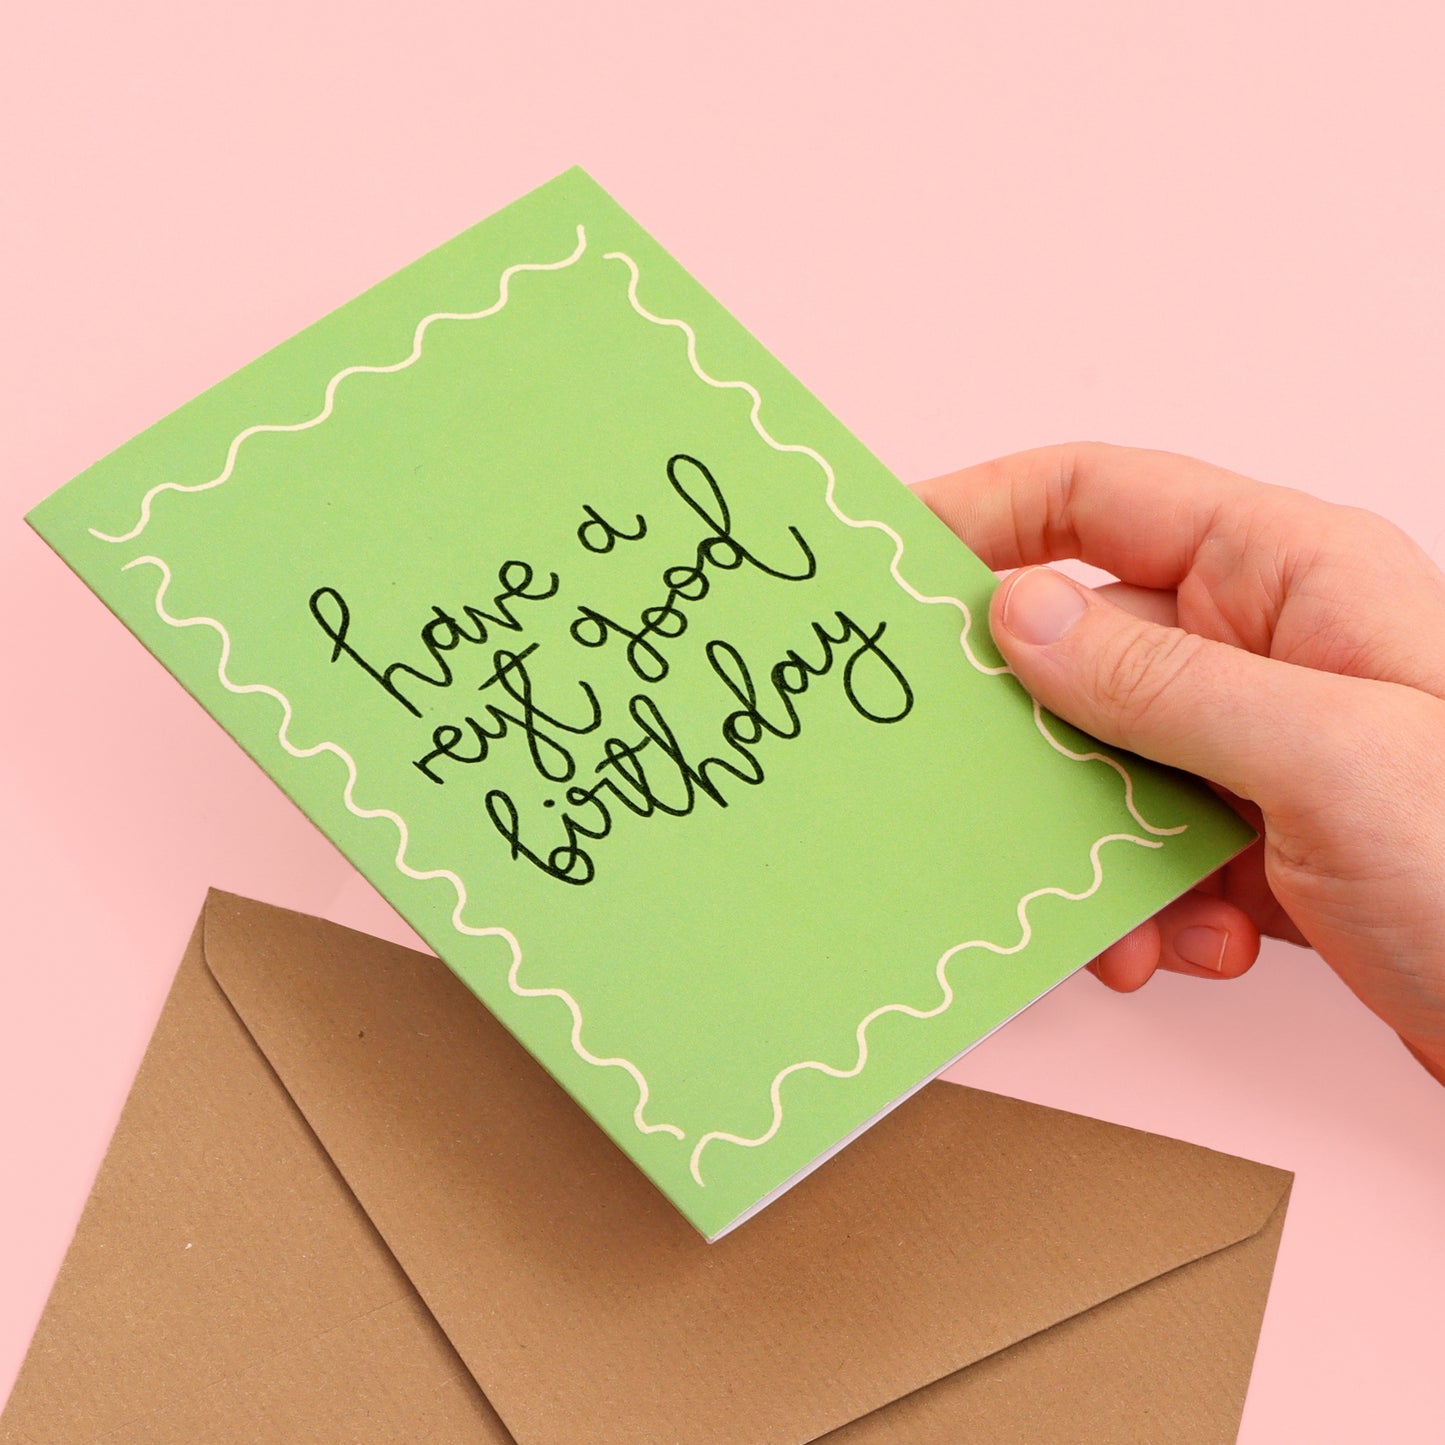 have a
reyt good
birthday